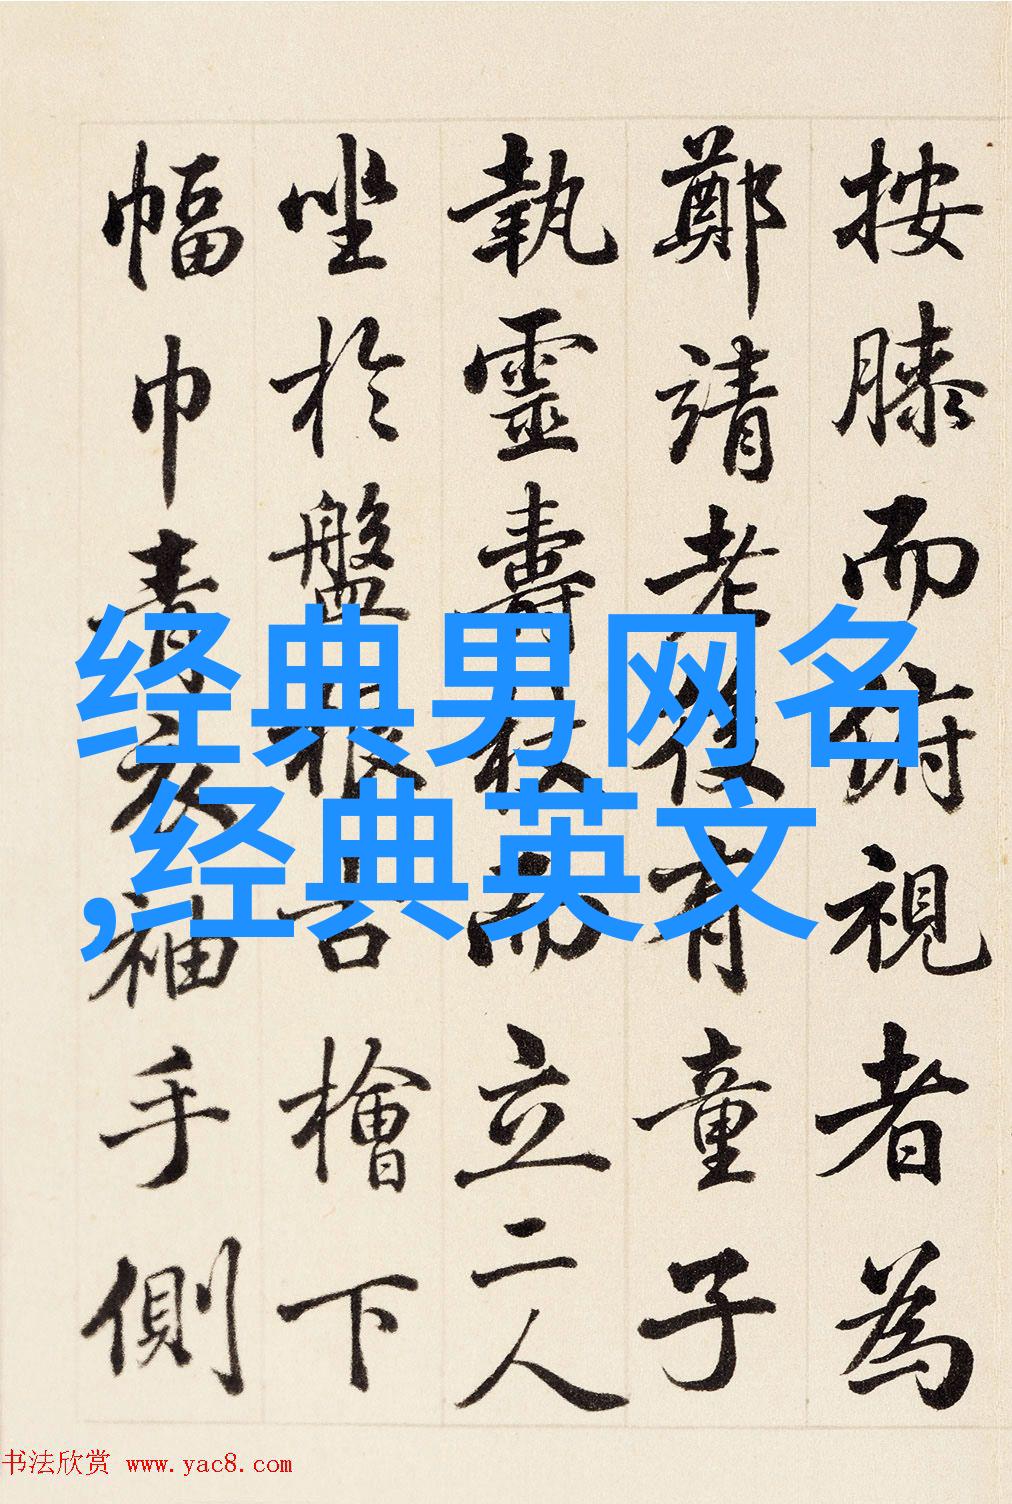 按膝而俯視者為
鄭靖老後有童子
執靈壽杖而立二人
坐於盤根古檜下
幅巾青衣袖手側
经典男网名
,经典英文
书法欣赏 www.yac8.com